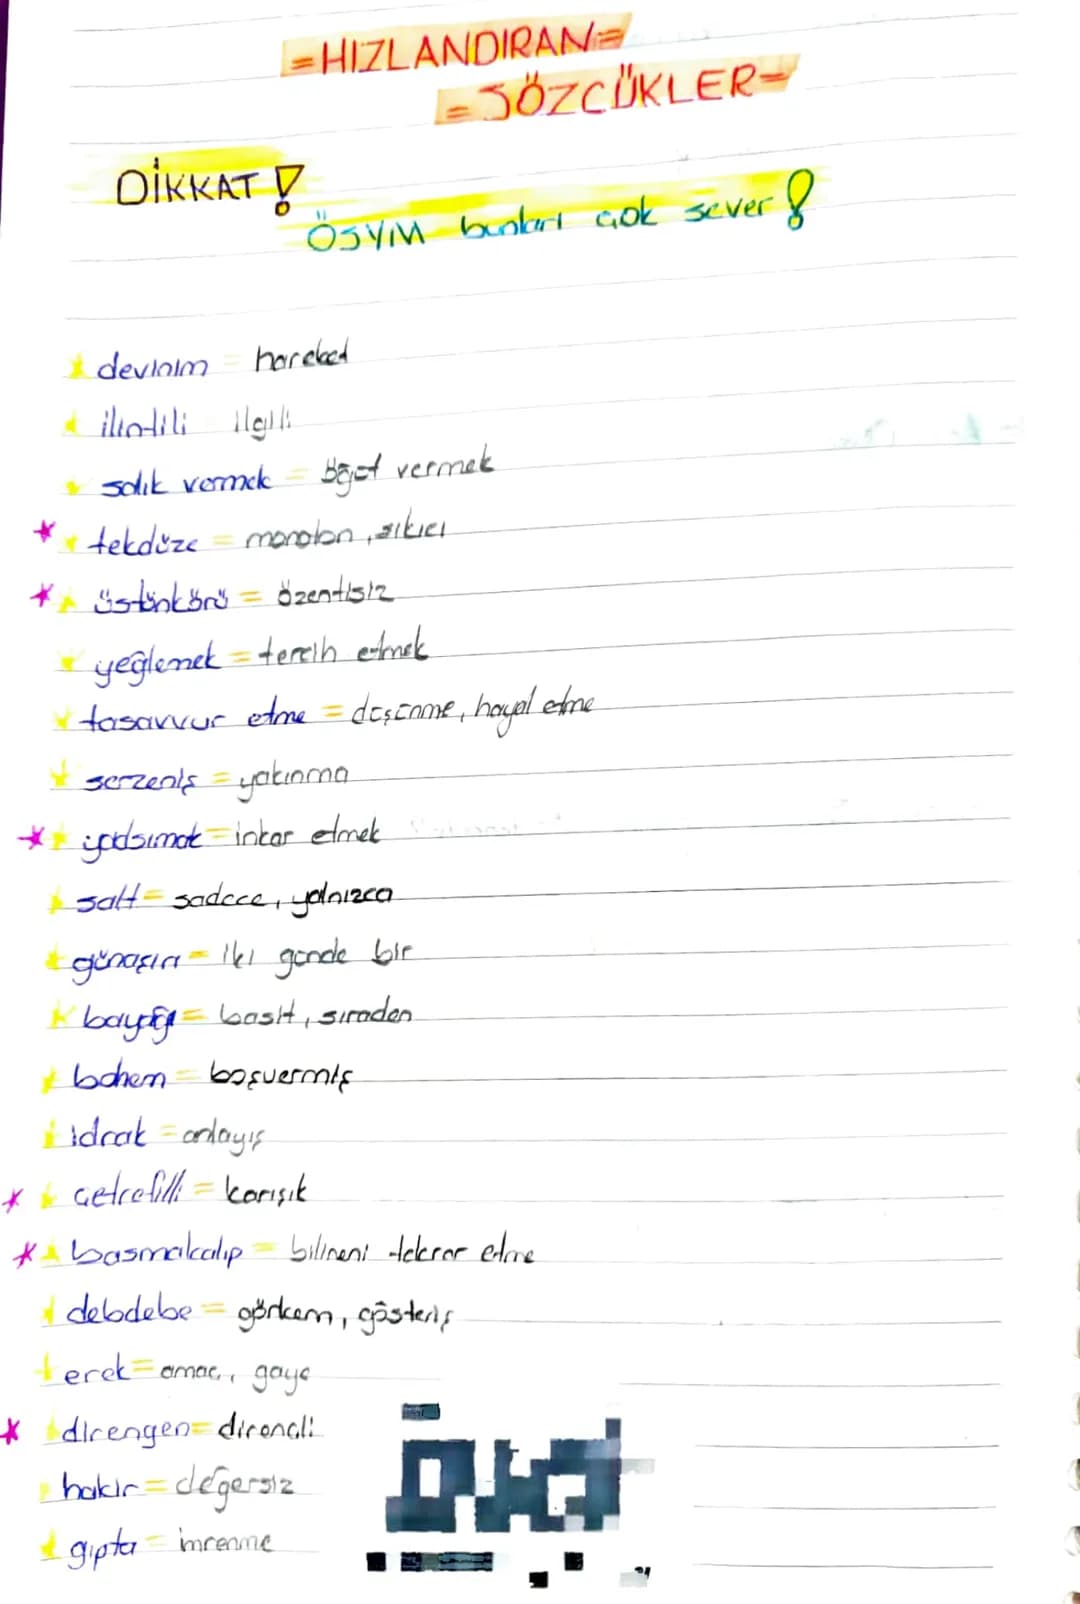 =HIZLANDIRAN=
=SÖZCÜKLER=
DİKKAT !
ÖSYM bunları çok sever !
devinim = hareket
ilintili ilgili
salık vermek = öğüt vermek
* tekdüze = monoton, sıkıcı
* üstünkörü = özentisiz
yeğlemek = tercih etmek
tasavvur etme = düşünme, hayal etme
serzeniş = yakınma
* yadsımak = inkar etmek
salt = sadece, yalnızca
günaşırı = iki günde bir
bayağı = basit, sıradan
bohem = boşvermiş
idrak = anlayış
* çetrefilli = karışık
* basmakalıp = bilineni tekrar etme
debdebe = görkem, gösteriş
erek = amaç, gaye
* direngen = dirençli
hakir = değersiz
gıpta = imrenme